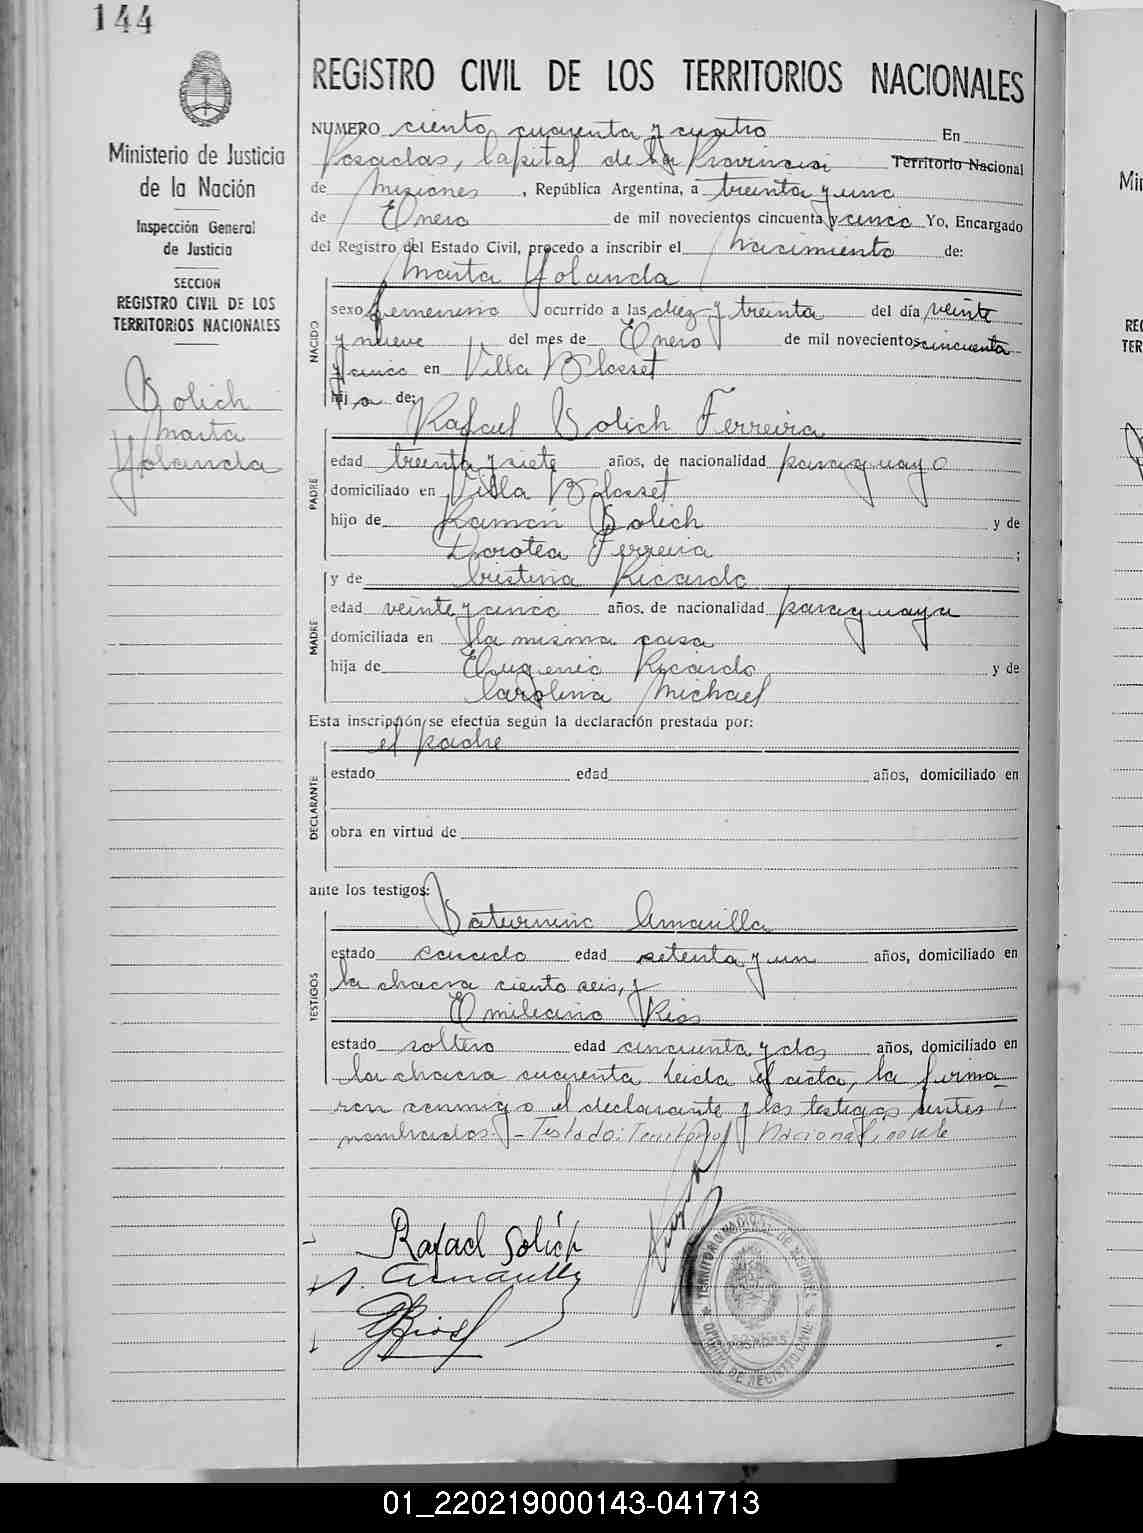 144
Ministerio de Justicia
de la Nación
Inspección General
de Justicia
SECCION
REGISTRO CIVIL DE LOS
TERRITORIOS NACIONALES
Solich
Marta
Yolanda
REGISTRO CIVIL DE LOS TERRITORIOS NACIONALES
NUMERO ciento cuarenta y cuatro En
Posadas, Capital de la Provincia Territorio Nacional
de Misiones, República Argentina, a treinta y uno
de Enero de mil novecientos cincuenta y cinco Yo, Encargado
del Registro del Estado Civil, procedo a inscribir el Nacimiento de:
Marta Yolanda
NACIDO
sexo femenino ocurrido a las diez y treinta del día veinte
y nueve del mes de Enero de mil novecientos cincuenta
y cinco en Villa Blosset
hija de:
Rafael Solich Ferreira
PADRE
edad treinta y siete años, de nacionalidad paraguayo
domiciliado en Villa Blosset
hijo de Ramón Solich y de
Dorotea Ferreira ;
y de Cristina Ricardo
MADRE
edad veinte y cinco años, de nacionalidad paraguaya
domiciliada en la misma casa
hija de Eugenio Ricardo y de
Carolina Michael
Esta inscripción se efectúa según la declaración prestada por:
el padre
DECLARANTE
estado edad años, domiciliado en
obra en virtud de
ante los testigos:
Saturnino Amarilla
TESTIGOS
estado casado edad setenta y un años, domiciliado en
la chacra ciento seis, y
Emiliano Rios
estado soltero edad cincuenta y dos años, domiciliado en
la chacra cuarenta Leida el acta, la firma
ron conmigo el declarante y los testigos antes
nombrados. - Testado: Territorio Nacional: no vale
Rafael Solich
S. Amarilla
E Rios
TERRITORIO NACIONAL DE MISIONES
OFICINA DE REGISTRO CIVIL
POSADAS
Mi
REG
TER
01_220219000143-041713